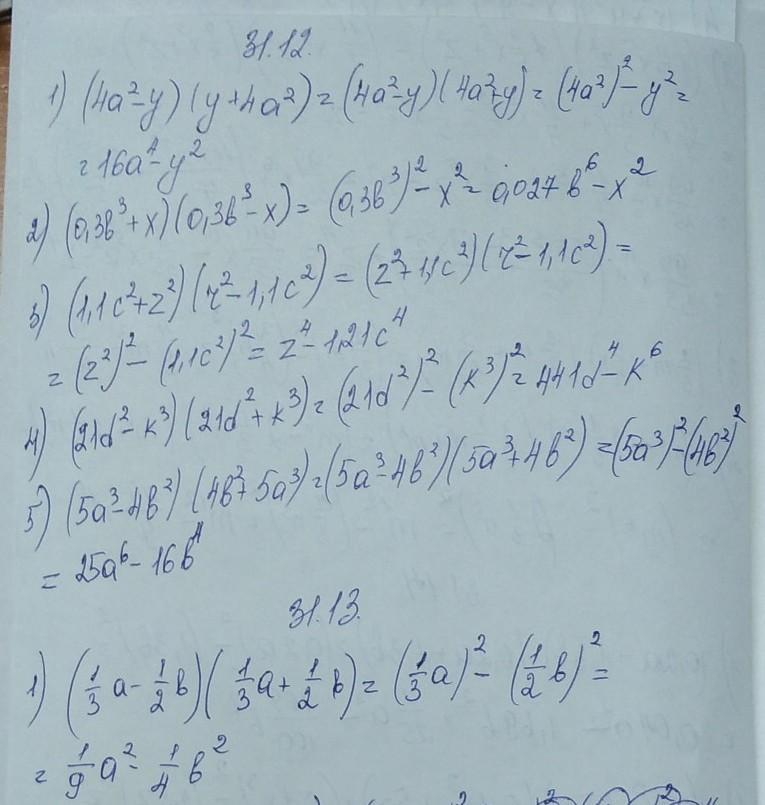 31.12.
1) (4a²-y)(y+4a²)=(4a²-y)(4a²+y)=(4a²)²-y²=
=16a⁴-y²
2) (0,3b³+x)(0,3b³-x)=(0,3b³)²-x²=0,027b⁶-x²
3) (1,1c²+z²)(z²-1,1c²)=(z²+1,1c²)(z²-1,1c²)=
=(z²)²-(1,1c²)²=z⁴-1,21c⁴
4) (21d²-k³)(21d²+k³)=(21d²)²-(k³)²=441d⁴-k⁶
5) (5a³-4b²)(4b²+5a³)=(5a³-4b²)(5a³+4b²)=(5a³)²-(4b²)²
=25a⁶-16b⁴
31.13.
1) (1/3a-1/2b)(1/3a+1/2b)=(1/3a)²-(1/2b)²=
=1/9a²-1/4b²